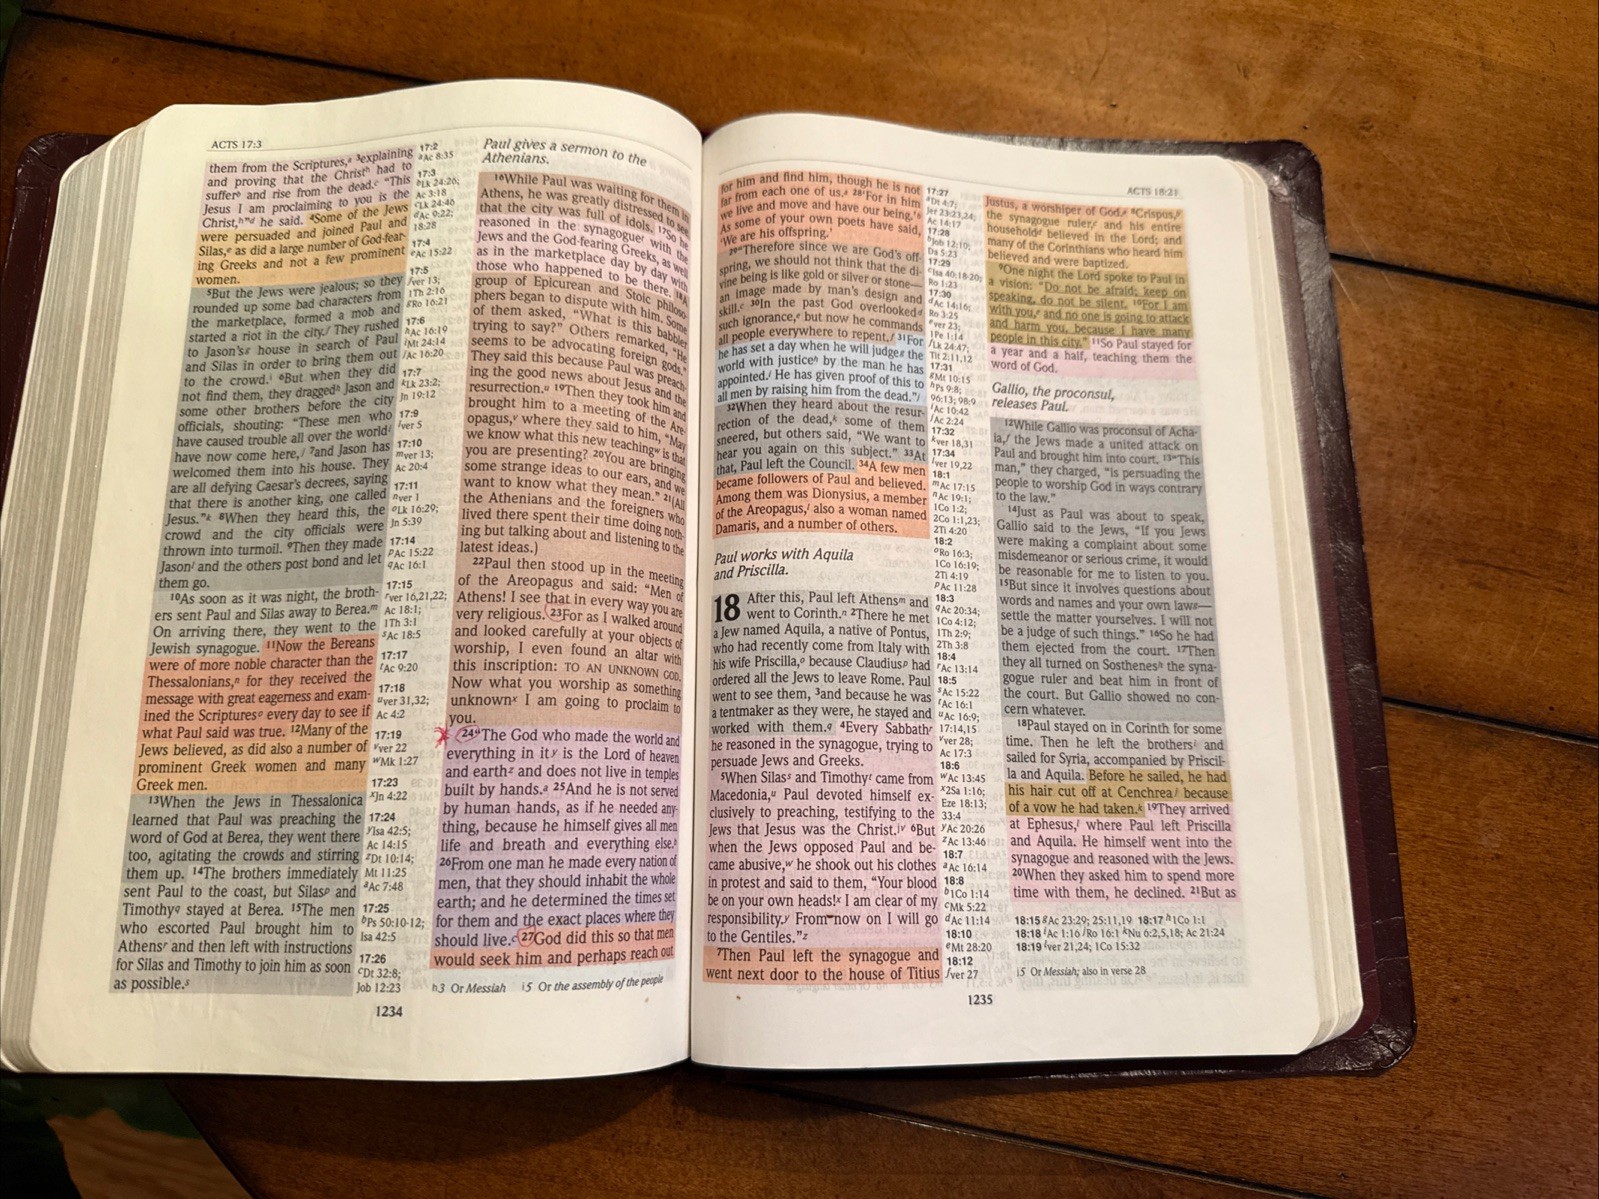 ACTS 17:3
them from the Scriptures,ᵃ ³explaining
and proving that the Christᵇ had to
sufferᵇ and rise from the dead.ᶜ “This
Jesus I am proclaiming to you is the
Christ,ʰ”ᵈ he said. ⁴Some of the Jews
were persuaded and joined Paul and
Silas,ᵉ as did a large number of God-fear-
ing Greeks and not a few prominent
women.
⁵But the Jews were jealous; so they
rounded up some bad characters from
the marketplace, formed a mob and
started a riot in the city.ᶠ They rushed
to Jason’sᵍ house in search of Paul
and Silas in order to bring them out
to the crowd.ⁱ ⁶But when they did
not find them, they draggedʰ Jason and
some other brothers before the city
officials, shouting: “These men who
have caused trouble all over the worldⁱ
have now come here,ʲ ⁷and Jason has
welcomed them into his house. They
are all defying Caesar’s decrees, saying
that there is another king, one called
Jesus.”ᵏ ⁸When they heard this, the
crowd and the city officials were
thrown into turmoil. ⁹Then they made
Jasonˡ and the others post bond and let
them go.
¹⁰As soon as it was night, the broth-
ers sent Paul and Silas away to Berea.ᵐ
On arriving there, they went to the
Jewish synagogue. ¹¹Now the Bereans
were of more noble character than the
Thessalonians,ⁿ for they received the
message with great eagerness and exam-
ined the Scripturesᵒ every day to see if
what Paul said was true. ¹²Many of the
Jews believed, as did also a number of
prominent Greek women and many
Greek men.
¹³When the Jews in Thessalonica
learned that Paul was preaching the
word of God at Berea, they went there
too, agitating the crowds and stirring
them up. ¹⁴The brothers immediately
sent Paul to the coast, but Silasᵖ and
Timothy۹ stayed at Berea. ¹⁵The men
who escorted Paul brought him to
Athensʳ and then left with instructions
for Silas and Timothy to join him as soon
as possible.ˢ
17:2
ᵃAc 8:35
17:3
ᵇLk 24:26;
Ac 3:18
ᶜLk 24:46
ᵈAc 9:22;
18:28
17:4
ᵉAc 15:22
17:5
ᶠver 13;
1Th 2:16
ᵍRo 16:21
17:6
ʰAc 16:19
ⁱMt 24:14
ʲAc 16:20
17:7
ᵏLk 23:2;
Jn 19:12
17:9
ˡver 5
17:10
ᵐver 13;
Ac 20:4
17:11
ⁿver 1
ᵒLk 16:29;
Jn 5:39
17:14
ᵖAc 15:22
qAc 16:1
17:15
ʳver 16,21,22;
Ac 18:1;
1Th 3:1
ˢAc 18:5
17:17
ᵗAc 9:20
17:18
ᵘver 31,32;
Ac 4:2
17:19
ᵛver 22
ʷMk 1:27
17:23
ˣJn 4:22
17:24
ʸIsa 42:5;
Ac 14:15
ᶻDt 10:14;
Mt 11:25
ᵃAc 7:48
17:25
ᵇPs 50:10-12;
Isa 42:5
17:26
ᶜDt 32:8;
Job 12:23
Paul gives a sermon to the
Athenians.
¹⁶While Paul was waiting for them in
Athens, he was greatly distressed to see
that the city was full of idols. ¹⁷So he
reasoned in the synagogueᵗ with the
Jews and the God-fearing Greeks, as well
as in the marketplace day by day with
those who happened to be there. ¹⁸A
group of Epicurean and Stoic philoso-
phers began to dispute with him. Some
of them asked, “What is this babbler
trying to say?” Others remarked, “He
seems to be advocating foreign gods.”
They said this because Paul was preach-
ing the good news about Jesus and the
resurrection.ᵘ ¹⁹Then they took him and
brought him to a meeting of the Are-
opagus,ᵛ where they said to him, “May
we know what this new teachingʷ is that
you are presenting? ²⁰You are bringing
some strange ideas to our ears, and we
want to know what they mean.” ²¹(All
the Athenians and the foreigners who
lived there spent their time doing noth-
ing but talking about and listening to the
latest ideas.)
²²Paul then stood up in the meeting
of the Areopagus and said: “Men of
Athens! I see that in every way you are
very religious. 23For as I walked around
and looked carefully at your objects of
worship, I even found an altar with
this inscription: TO AN UNKNOWN GOD.
Now what you worship as something
unknownˣ I am going to proclaim to
you.
24“The God who made the world and
everything in itʸ is the Lord of heaven
and earthᶻ and does not live in temples
built by hands.ᵃ 25And he is not served
by human hands, as if he needed any-
thing, because he himself gives all men
life and breath and everything else.ᵇ
26From one man he made every nation of
men, that they should inhabit the whole
earth; and he determined the times set
for them and the exact places where they
should live.ᶜ 27God did this so that men
would seek him and perhaps reach out
h3 Or Messiah i5 Or the assembly of the people
1234
ACTS 18:21
for him and find him, though he is not
far from each one of us.ᵈ ²⁸‘For in him
we live and move and have our being.’ᵉ
As some of your own poets have said,
‘We are his offspring.’
²⁹“Therefore since we are God’s off-
spring, we should not think that the di-
vine being is like gold or silver or stone—
an image made by man’s design and
skill.ᶜ ³⁰In the past God overlookedᵈ
such ignorance,ᵉ but now he commands
all people everywhere to repent.ᶠ ³¹For
he has set a day when he will judgeᵍ the
world with justiceʰ by the man he has
appointed.ⁱ He has given proof of this to
all men by raising him from the dead.”ʲ
³²When they heard about the resur-
rection of the dead,ᵏ some of them
sneered, but others said, “We want to
hear you again on this subject.” ³³At
that, Paul left the Council. ³⁴A few men
became followers of Paul and believed.
Among them was Dionysius, a member
of the Areopagus,ˡ also a woman named
Damaris, and a number of others.
Paul works with Aquila
and Priscilla.
18 After this, Paul left Athensᵐ and
went to Corinth.ⁿ ²There he met
a Jew named Aquila, a native of Pontus,
who had recently come from Italy with
his wife Priscilla,ᵒ because Claudiusᵖ had
ordered all the Jews to leave Rome. Paul
went to see them, ³and because he was
a tentmaker as they were, he stayed and
worked with them.q ⁴Every Sabbathʳ
he reasoned in the synagogue, trying to
persuade Jews and Greeks.
⁵When Silasˢ and Timothyᵗ came from
Macedonia,ᵘ Paul devoted himself ex-
clusively to preaching, testifying to the
Jews that Jesus was the Christ.ⁱᵛ ⁶But
when the Jews opposed Paul and be-
came abusive,ʷ he shook out his clothes
in protest and said to them, “Your blood
be on your own heads!ˣ I am clear of my
responsibility.ʸ From now on I will go
to the Gentiles.”ᶻ
⁷Then Paul left the synagogue and
went next door to the house of Titius
17:27
ᵃDt 4:7;
Jer 23:23,24;
Ac 14:17
17:28
ᵇJob 12:10;
Da 5:23
17:29
ᶜIsa 40:18-20;
Ro 1:23
17:30
ᵈAc 14:16;
Ro 3:25
ᵉver 23;
1Pe 1:14
ᶠLk 24:47;
Tit 2:11,12
17:31
ᵍMt 10:15
ʰPs 9:8;
96:13; 98:9
ⁱAc 10:42
ʲAc 2:24
17:32
ᵏver 18,31
17:34
ˡver 19,22
18:1
ᵐAc 17:15
ⁿAc 19:1;
1Co 1:2;
2Co 1:1,23;
2Ti 4:20
18:2
ᵒRo 16:3;
1Co 16:19;
2Ti 4:19
ᵖAc 11:28
18:3
qAc 20:34;
1Co 4:12;
1Th 2:9;
2Th 3:8
18:4
ʳAc 13:14
18:5
ˢAc 15:22
ᵗAc 16:1
ᵘAc 16:9;
17:14,15
ᵛver 28;
Ac 17:3
18:6
ʷAc 13:45
ˣ2Sa 1:16;
Eze 18:13;
33:4
ʸAc 20:26
ᶻAc 13:46
18:7
ᵃAc 16:14
18:8
ᵇ1Co 1:14
ᶜMk 5:22
ᵈAc 11:14
18:10
ᵉMt 28:20
18:12
ᶠver 27
Justus, a worshiper of God.ᵃ ⁸Crispus,ᵇ
the synagogue ruler,ᶜ and his entire
householdᵈ believed in the Lord; and
many of the Corinthians who heard him
believed and were baptized.
⁹One night the Lord spoke to Paul in
a vision: “Do not be afraid; keep on
speaking, do not be silent. ¹⁰For I am
with you,ᵉ and no one is going to attack
and harm you, because I have many
people in this city.” ¹¹So Paul stayed for
a year and a half, teaching them the
word of God.
Gallio, the proconsul,
releases Paul.
¹²While Gallio was proconsul of Acha-
ia,ᶠ the Jews made a united attack on
Paul and brought him into court. ¹³“This
man,” they charged, “is persuading the
people to worship God in ways contrary
to the law.”
¹⁴Just as Paul was about to speak,
Gallio said to the Jews, “If you Jews
were making a complaint about some
misdemeanor or serious crime, it would
be reasonable for me to listen to you.
¹⁵But since it involves questions about
words and names and your own lawᵍ—
settle the matter yourselves. I will not
be a judge of such things.” ¹⁶So he had
them ejected from the court. ¹⁷Then
they all turned on Sosthenesʰ the syna-
gogue ruler and beat him in front of
the court. But Gallio showed no con-
cern whatever.
¹⁸Paul stayed on in Corinth for some
time. Then he left the brothersⁱ and
sailed for Syria, accompanied by Priscil-
la and Aquila. Before he sailed, he had
his hair cut off at Cenchreaʲ because
of a vow he had taken.ᵏ ¹⁹They arrived
at Ephesus,ˡ where Paul left Priscilla
and Aquila. He himself went into the
synagogue and reasoned with the Jews.
²⁰When they asked him to spend more
time with them, he declined. ²¹But as
18:15 ᵍAc 23:29; 25:11,19 18:17 ʰ1Co 1:1
18:18 ⁱAc 1:16 ʲRo 16:1 ᵏNu 6:2,5,18; Ac 21:24
18:19 ˡver 21,24; 1Co 15:32
i5 Or Messiah; also in verse 28
1235